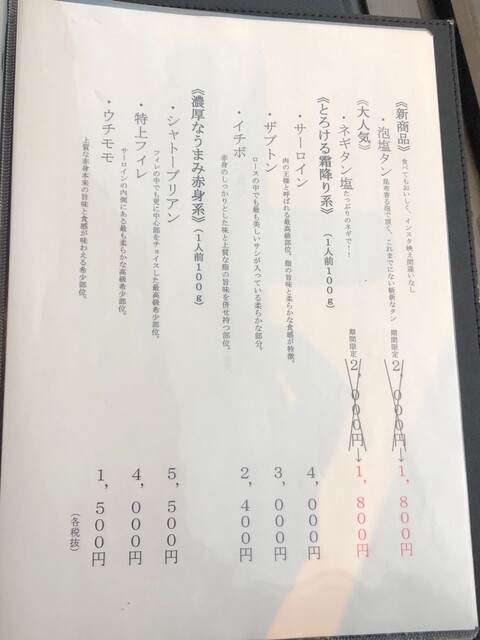 《新商品》 食べてもおいしく、インスタ映え間違いなし
・泡塩タン 昆布香る泡で頂く、これまでにない斬新なタン 期間限定 2,000円→1,800円
《大人気》
・ネギタン塩 たっぷりのネギで!! 期間限定 2,000円→1,800円
《とろける霜降り系》(1人前100g)
・サーロイン 4,000円
肉の王様と呼ばれる最高級部位。脂の旨味と柔らかな食感が特徴。
・ザブトン 3,000円
ロースの中でも最も美しいサシが入っている柔らかな部分。
・イチボ 2,400円
赤身のしっかりとした味と上質な脂の旨味を併せ持つ部位。
《濃厚なうまみ赤身系》(1人前100g)
・シャトーブリアン 5,500円
フィレの中でも更に中心部をチョイスした最高級希少部位。
・特上フィレ 4,000円
サーロインの内側にある最も柔らかな高級希少部位。
・ウチモモ 1,500円
上質な赤身本来の旨味と食感が味わえる希少部位。
(各税抜)